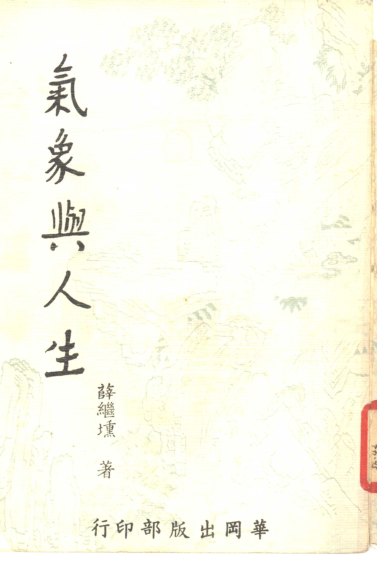 氣象與人生
薛繼壎 著
華岡出版部印行